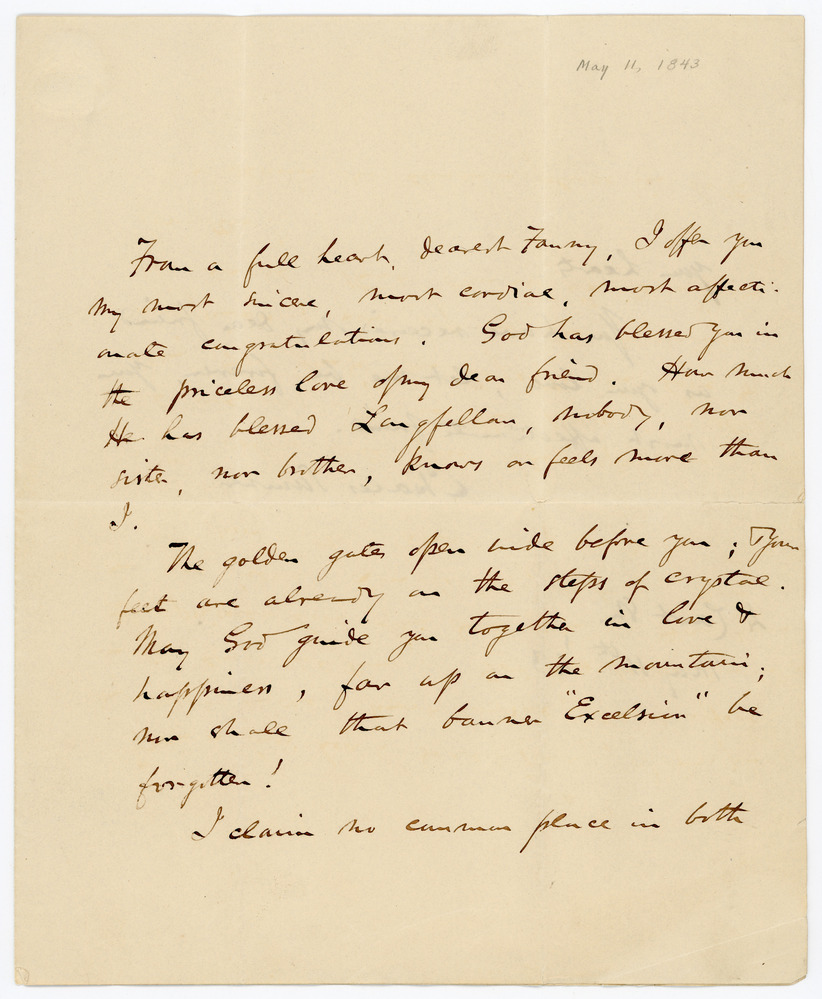 May 11, 1843
From a full heart, dearest Fanny, I offer you
my most sincere, most cordial, most affecti-
onate congratulations. God has blessed you in
the priceless love of my dear friend. How much
He has blessed Longfellow, nobody, nor
sister, nor brother, knows or feels more than
I.
The golden gates open wide before you; & your
feet are already on the steps of crystal.
May God guide you together in love &
happiness, far up on the mountain;
nor shall that banner "Excelsior" be
forgotten!
I claim no common place in both